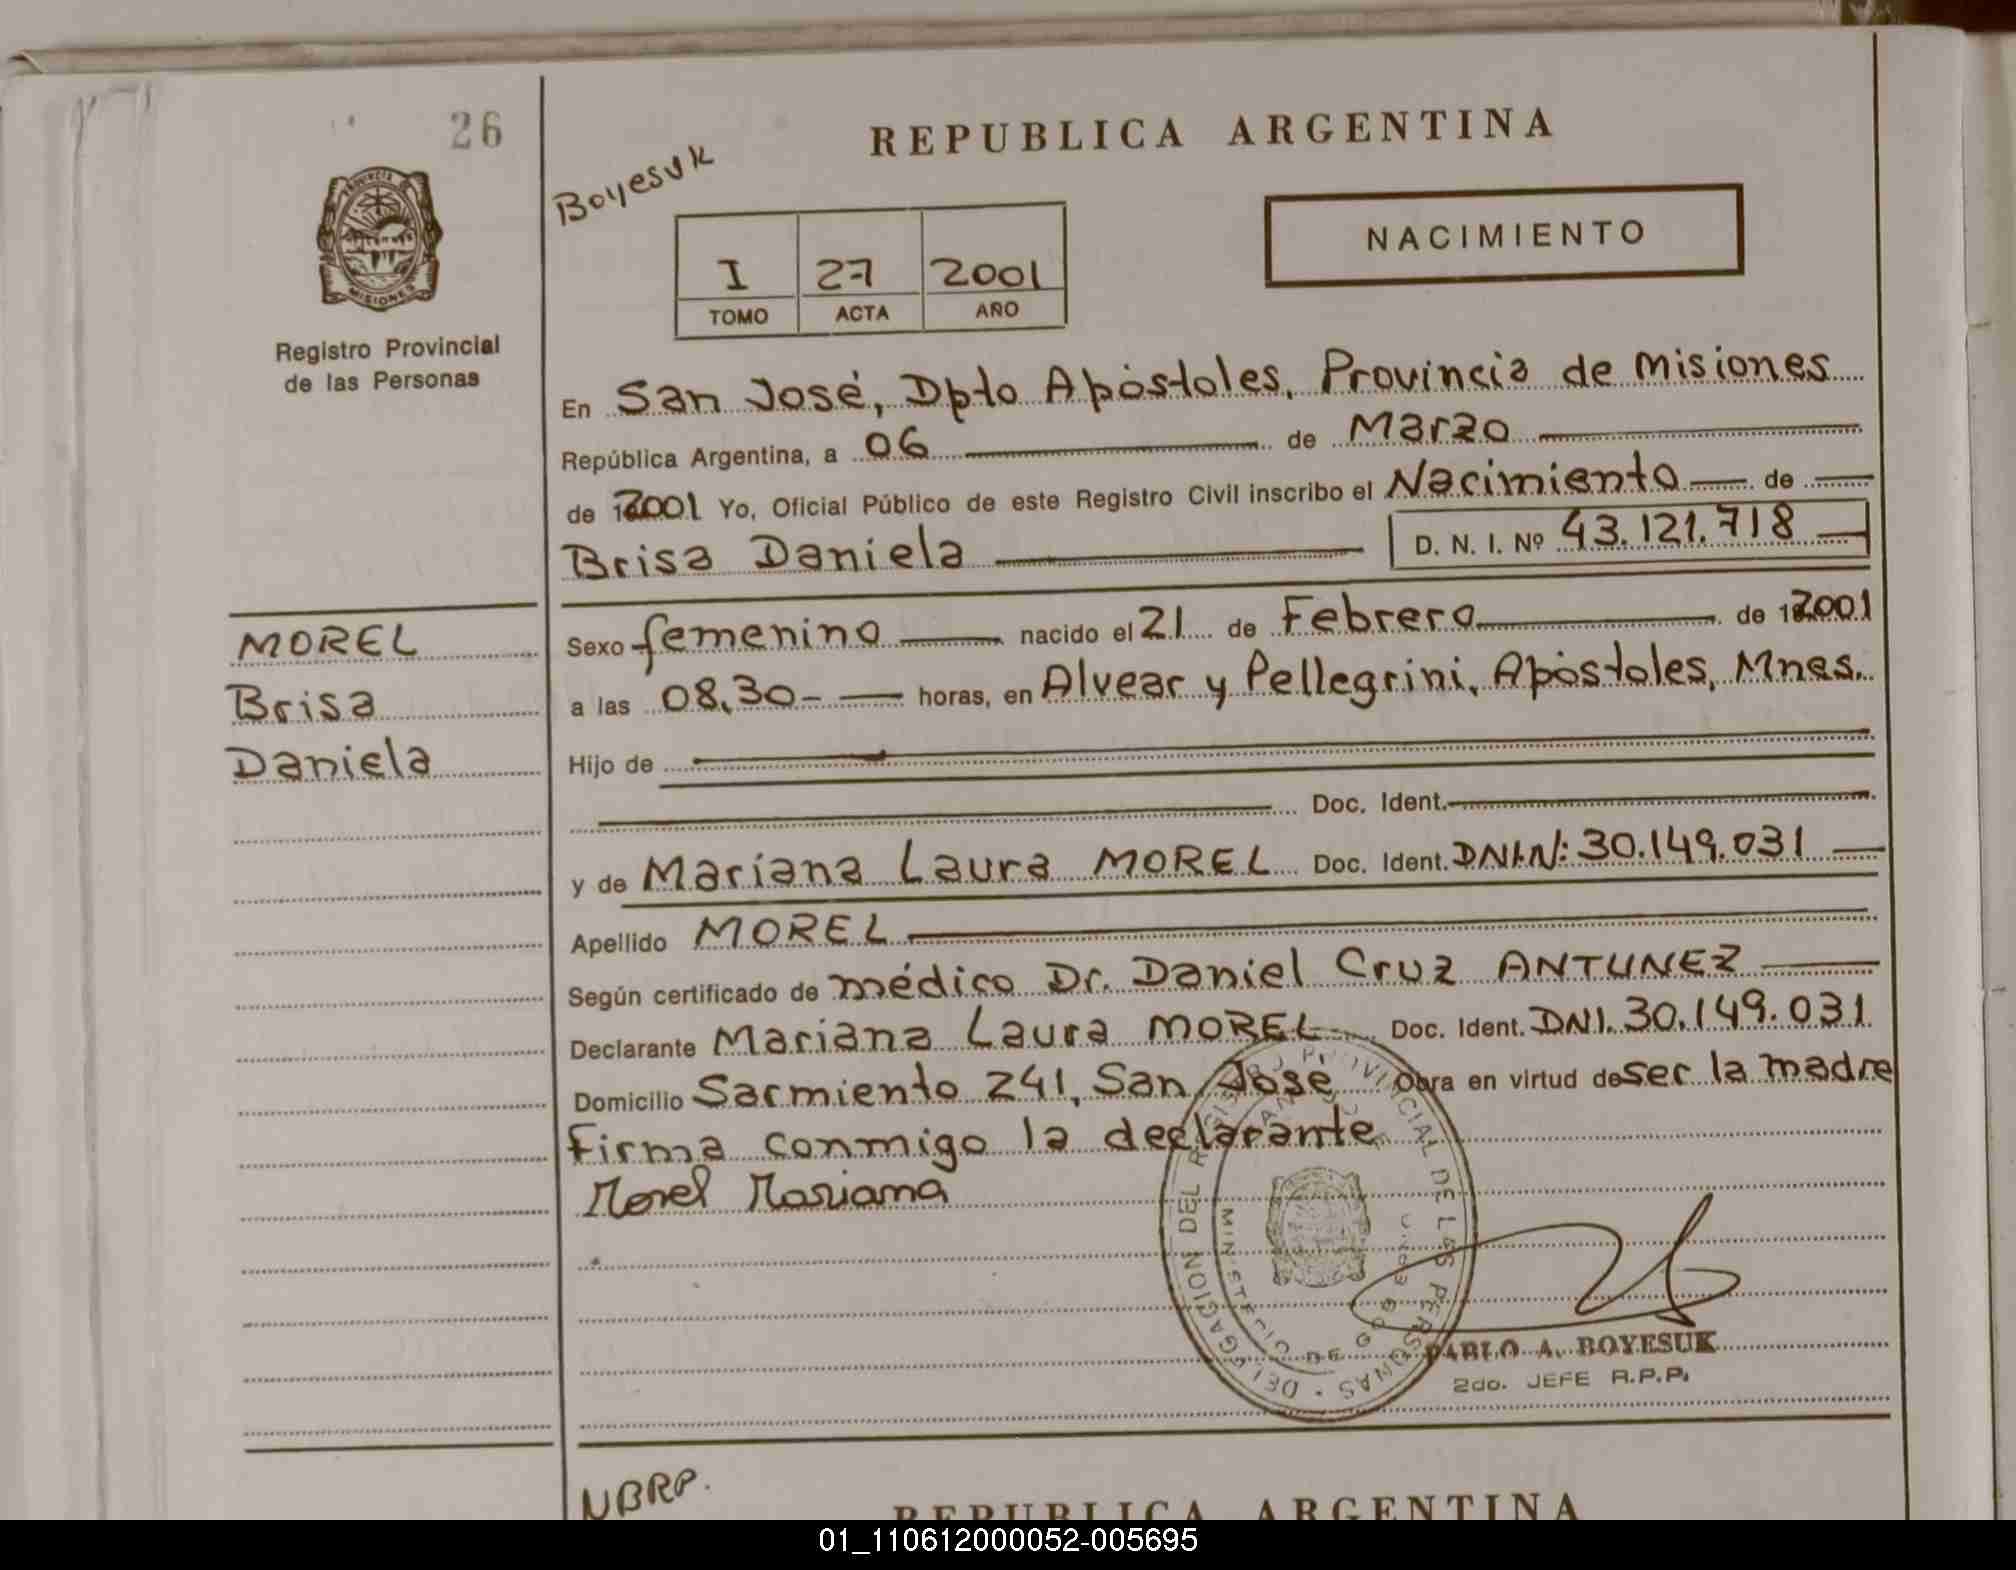 26
Registro Provincial
de las Personas
Boyesuk
REPUBLICA ARGENTINA
NACIMIENTO
I 27 2001
TOMO ACTA AÑO
En San José, Dpto Apóstoles, Provincia de Misiones
República Argentina, a 06 de Marzo
de 2001 Yo, Oficial Público de este Registro Civil inscribo el Nacimiento de
Brisa Daniela D. N. I. Nº 43.121.718
MOREL
Brisa
Daniela
Sexo femenino nacido el 21 de Febrero de 2001
a las 08,30- horas, en Alvear y Pellegrini, Apóstoles, Mnes.
Hijo de
Doc. Ident.
y de Mariana Laura MOREL Doc. Ident. DNI.N: 30.149.031
Apellido MOREL
Según certificado de médico Dr. Daniel Cruz ANTUNEZ
Declarante Mariana Laura MOREL Doc. Ident. DNI. 30.149.031
Domicilio Sarmiento 241, San José Obra en virtud de ser la madre
Firma conmigo la declarante
Morel Mariana
DELEGACION DEL REGISTRO PROVINCIAL DE LAS PERSONAS
MINISTERIO DE GOB
PABLO A. BOYESUK
2do. JEFE R.P.P.
NBRP.
REPUBLICA ARGENTINA
01_110612000052-005695